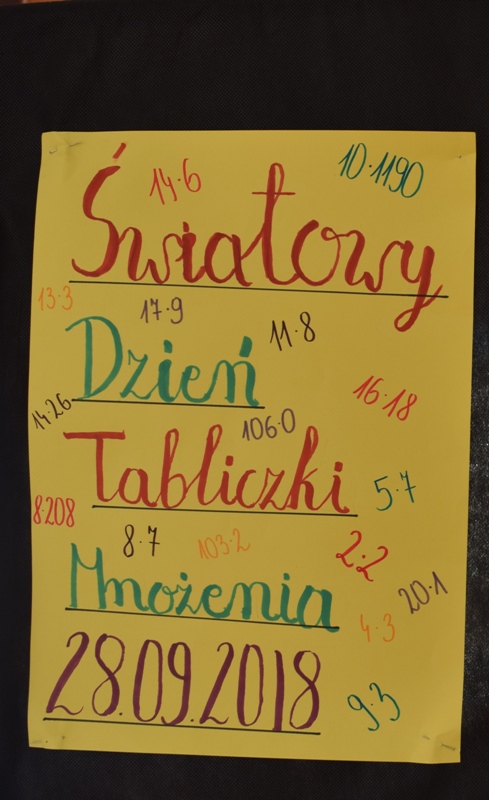 14·6
10·1190
Światowy
13·3
17·9
11·8
Dzień
16·18
14·26
106·0
Tabliczki
5·7
8·208
8·7
103·2
2·2
Mnożenia
20·1
4·3
28.09.2018
9·3